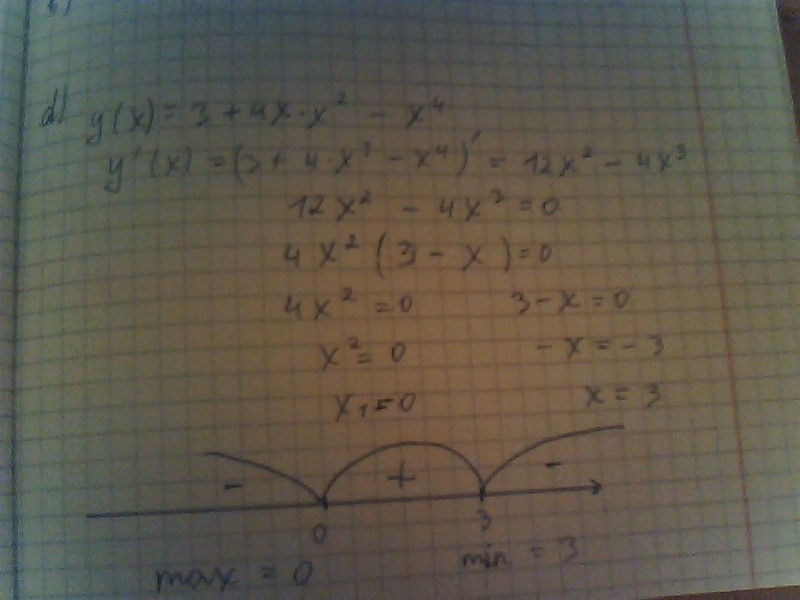 d) y(x) = 3 + 4x · x² - x⁴
y'(x) = (3 + 4 · x³ - x⁴)' = 12x² - 4x³
12x² - 4x³ = 0
4x² (3 - x) = 0
4x² = 0 3 - x = 0
x² = 0 - x = - 3
x₁ = 0 x = 3
- + -
0 3
max = 0 min = 3